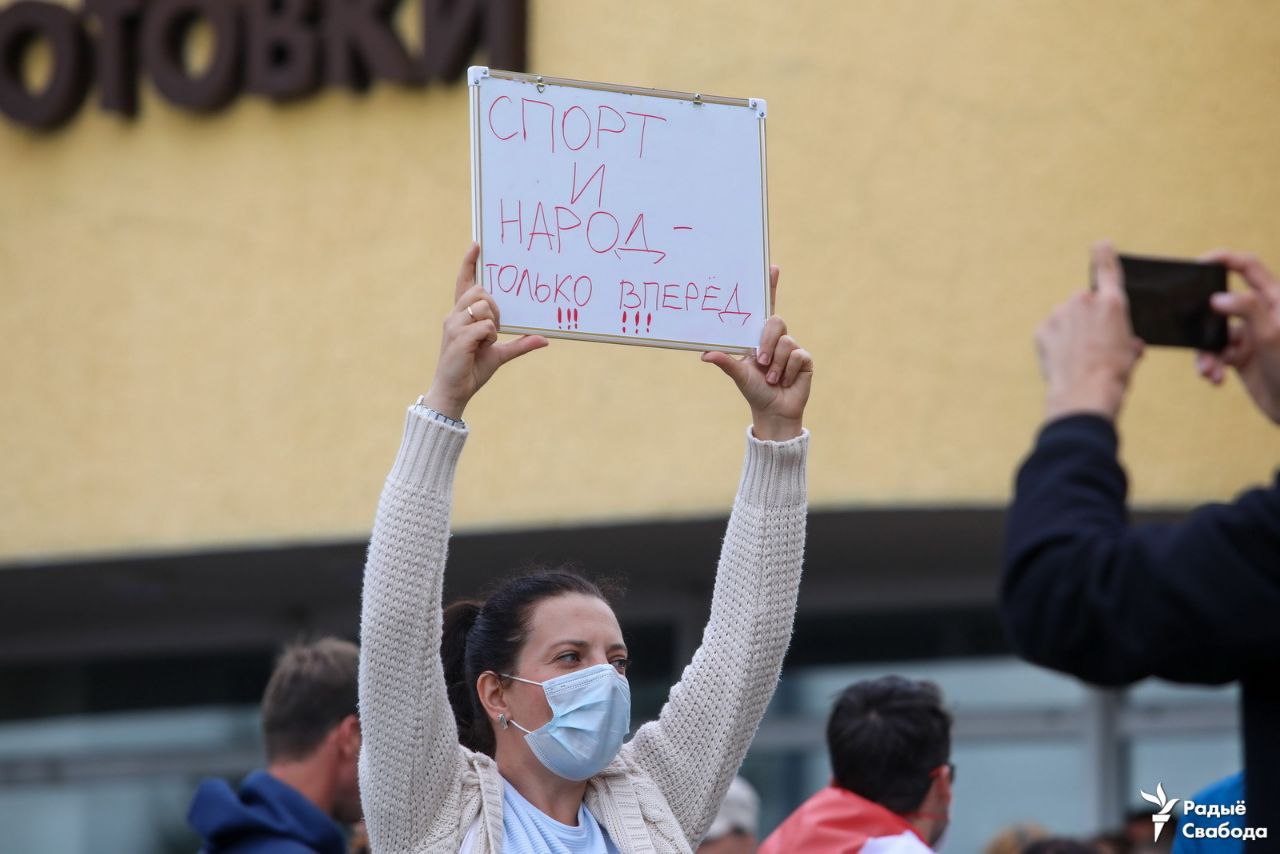 ОТОВКИ
СПОРТ
И
НАРОД-
ТОЛЬКО ВПЕРЁД
!!! !!!
Радыё
Свабода